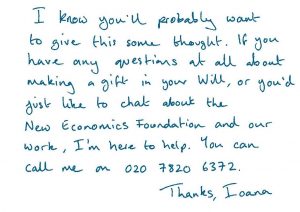 I know you'll probably want
to give this some thought. If you
have any questions at all about
making a gift in your Will, or you'd
just like to chat about the
New Economics Foundation and our
work, I'm here to help. You can
call me on 020 7820 6372.
Thanks, Ioana